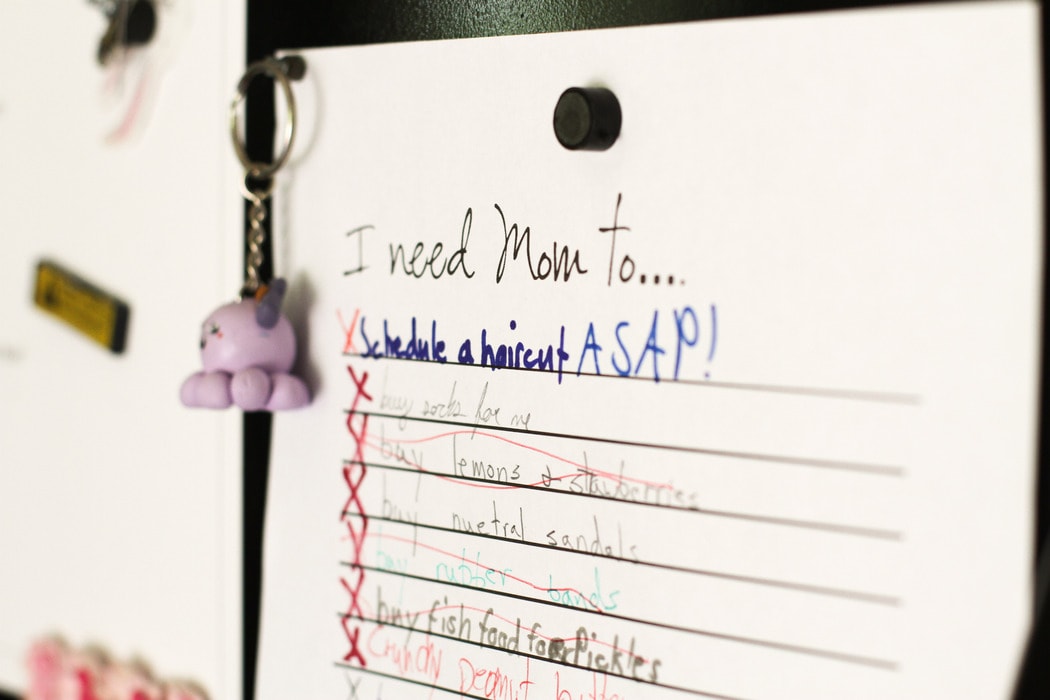 I need Mom to....
X Schedule a haircut ASAP!
X buy socks for me
X buy lemons & stawberries
X buy nuetral sandals
X buy rubber bands
X buy fish food for Pickles
X Crunchy Peanut butter
X